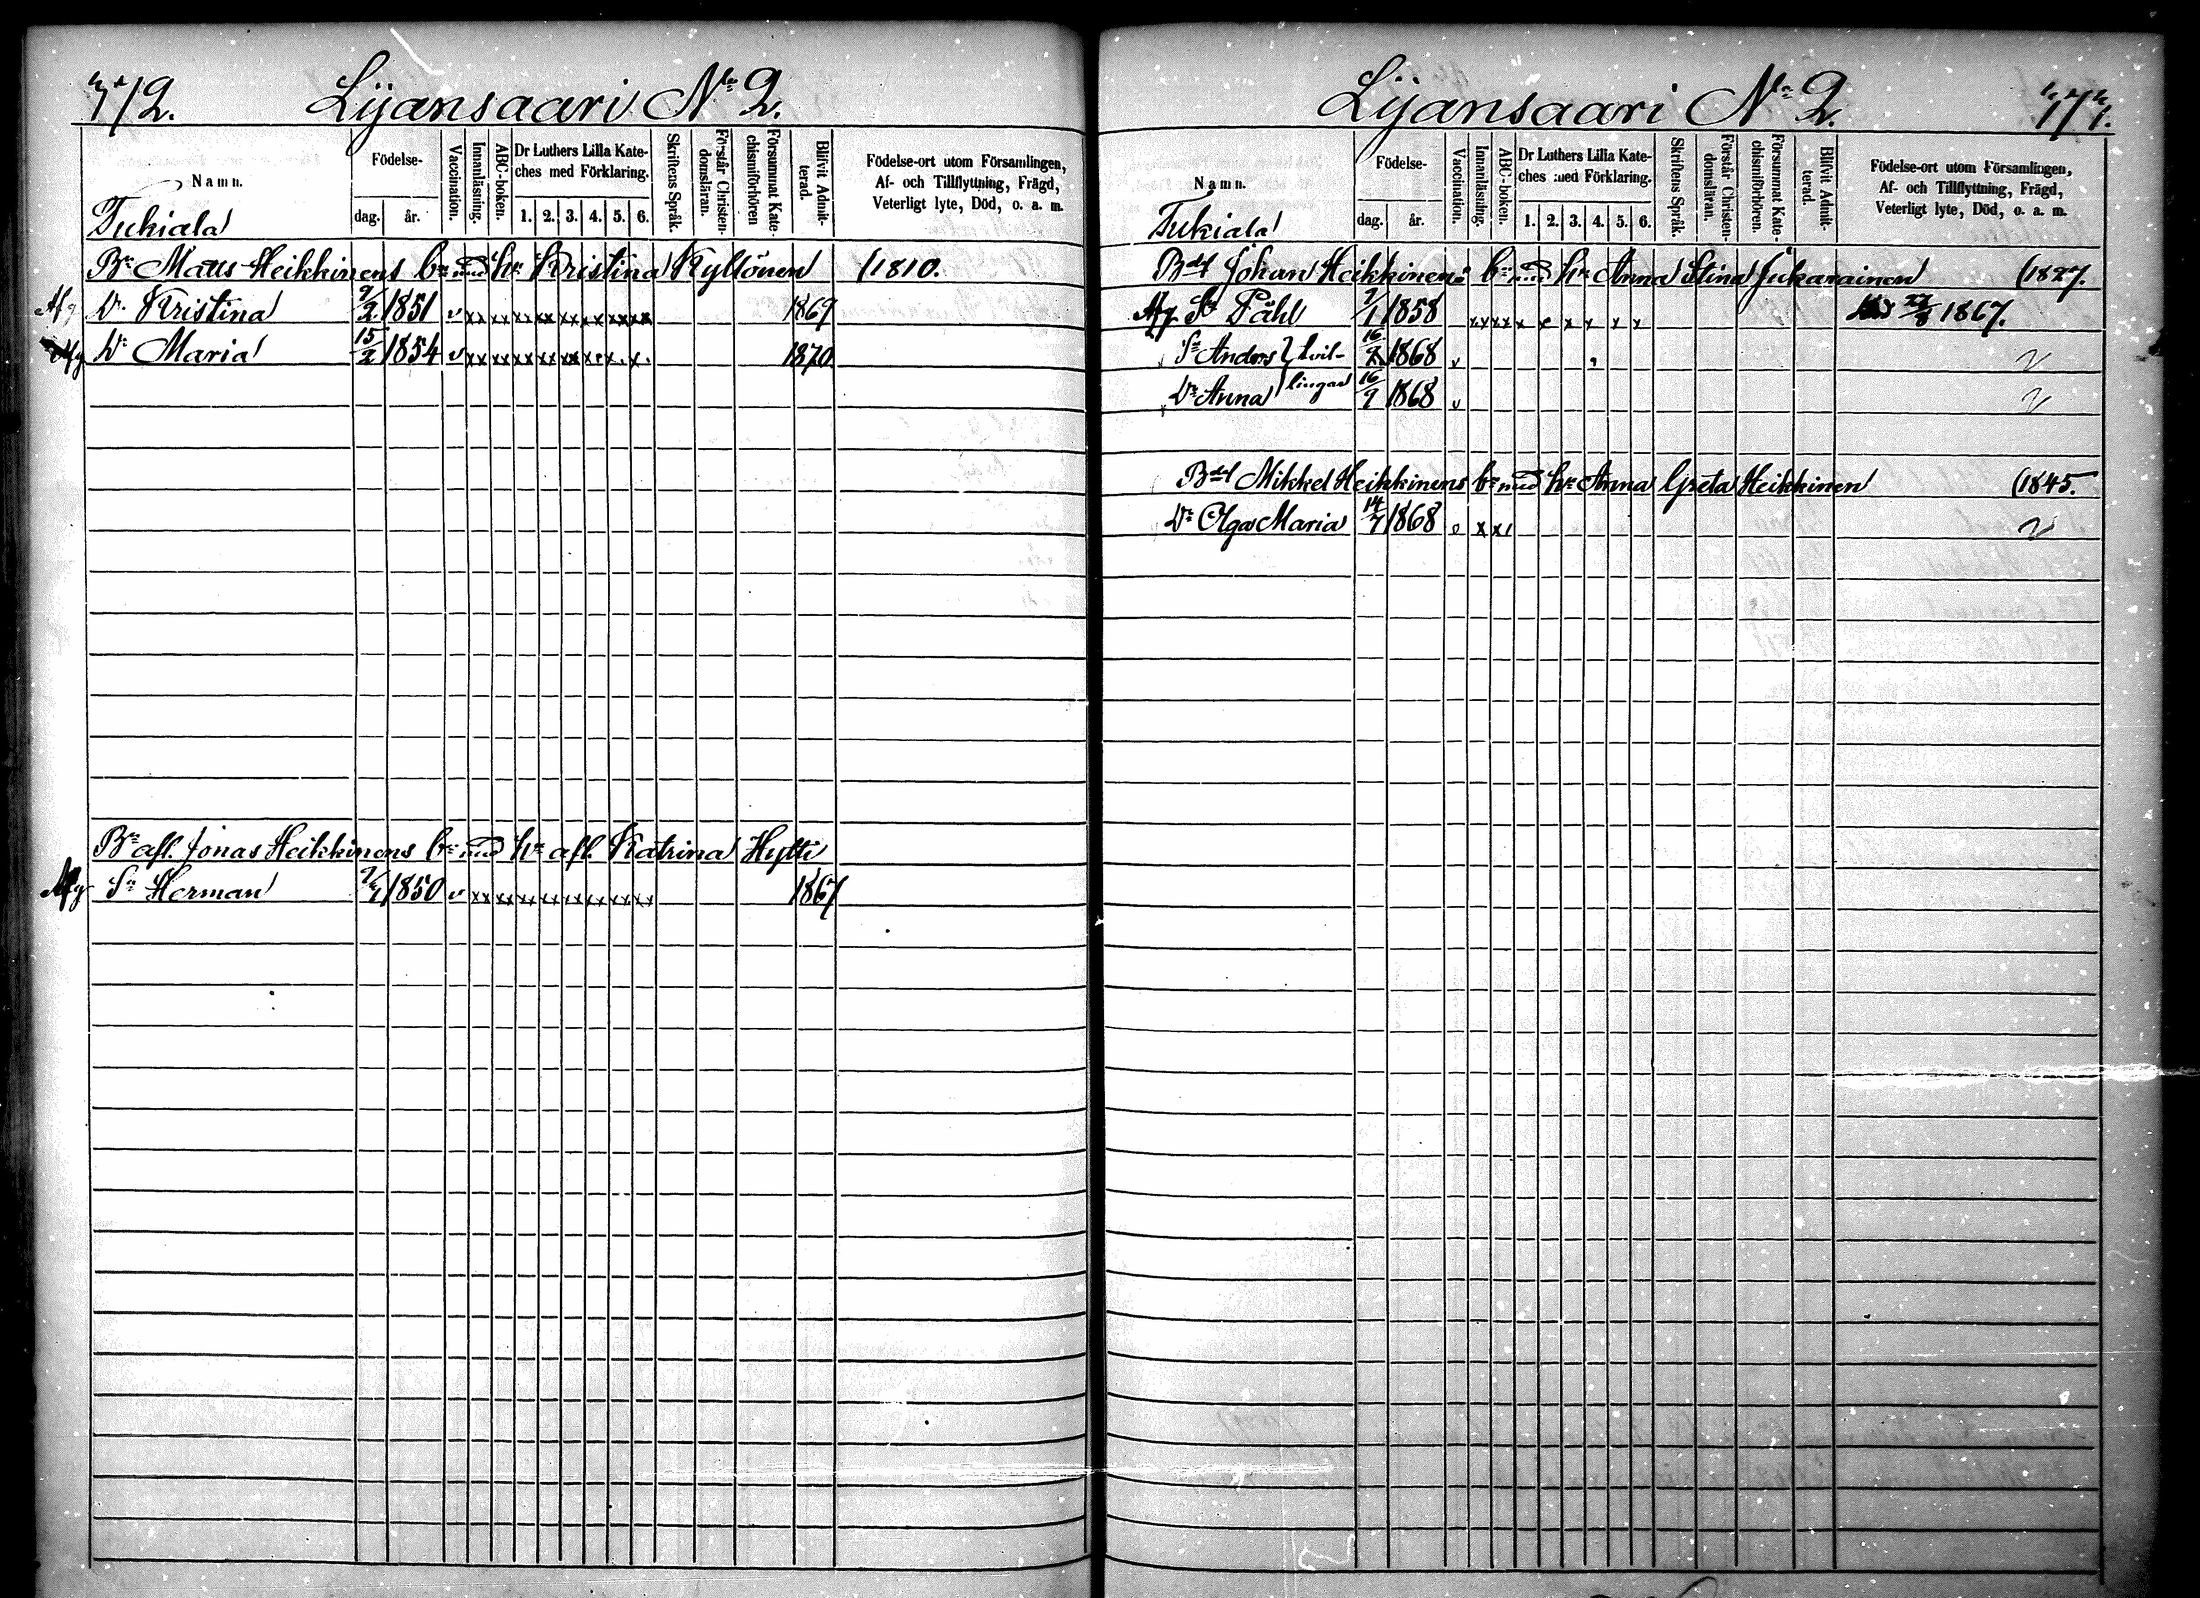 772. Lijansaari No 2.
Namn.
Födelse-
dag. år.
Vaccination.
Innanläsning.
ABC-boken.
Dr Luthers Lilla Kate-
ches med Förklaring.
1. 2. 3. 4. 5. 6.
Skriftens Språk.
Förstår Christen-
domsläran.
Försummat Kate-
chismiförhören
Blifvit Admit-
terad.
Födelse-ort utom Församlingen,
Af- och Tillflyttning, Frägd,
Veterligt lyte, Död, o. a. m.
Tukiala
Bn Matts Heikkinens bn med hu Kristina Kyllönen (1810.
Afg Dr Kristina 9/2 1851 v xx xx xx xx xx xx xx xx 1869
Afg Dr Maria 15/2 1854 v xx xx xx xx xx x. x. x. 1870.
Bn afl. Jonas Heikkinens bn med hu afl. Katrina Hytti
Afg Sn Herman 1850 v xx xx xx xx xx xx xx xx 1867
Lijansaari No 2.
Namn.
Födelse-
dag. år.
Vaccination.
Innanläsning.
ABC-boken.
Dr Luthers Lilla Kate-
ches med Förklaring.
1. 2. 3. 4. 5. 6.
Skriftens Språk.
Förstår Christen-
domsläran.
Försummat Kate-
chismiförhören.
Blifvit Admit-
terad.
Födelse-ort utom Församlingen,
Af- och Tillflyttning, Frägd,
Veterligt lyte, Död, o. a. m.
Tukiala
Bdl Johan Heikkinens bn med hu Anna Stina Jukarainen (1827.
Afg. Sn Påhl 1858 xx xx x x x x x x 22/8 1867.
Sn Anders tvil- 16/9 1868 v
Dr Anna lingar 16/9 1868 v
Bdl Mikkel Heikkinens bn med hu Anna Greta Heikkinen (1845.
Dr Olga Maria 14/7 1868 v x x